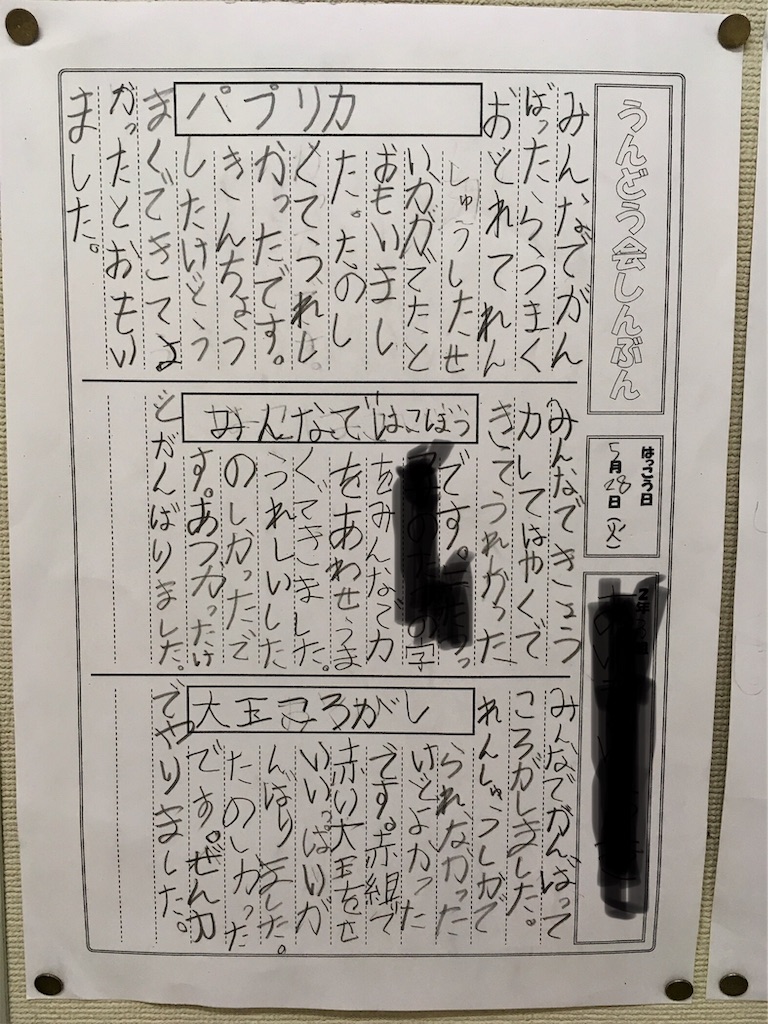 うんどう会しんぶん
はっこう日
5月28日(火)
2年
パプリカ
みんなでがん
ばったらうまく
おどれてれん
しゅうしたせ
いかがでたと
おもいまし
た。たのし
くてうれし
かったです。
きんちょう
したけどう
まくできてよ
かったとおもい
ました。
みんなではこぼう
みんなできょう
力してはやくで
きてうれかった
です。
字
をみんなで力
をあわせうま
くできました。
うれしいした
のしかったで
す。あつかったけ
どがんばりました。
大玉ころがし
みんなでがんばって
ころがしました。
れんしゅうしかで
られなかった
けどよかった
です。赤組で
赤い大玉をせ
いいっぱいが
んばりました。
たのしかった
です。ぜん力
でやりました。